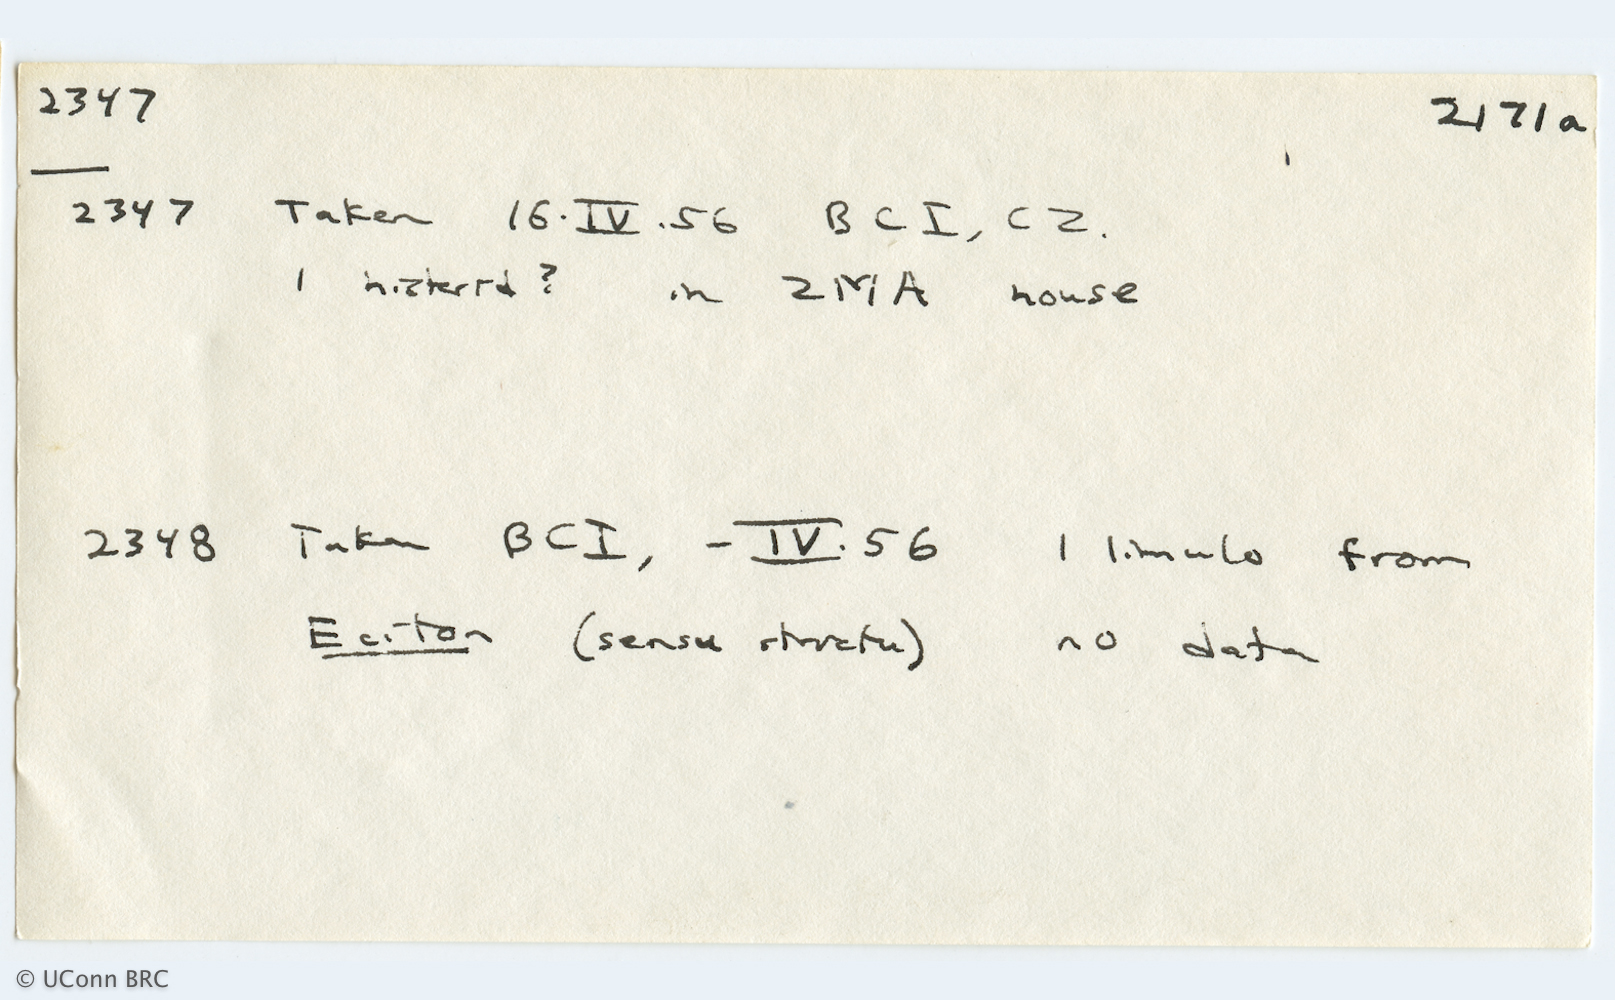 2347 2171a
2347 Taken 16.IV.56 BCI, CZ.
1 histerid? in ZMA house
2348 Taken BCI, -IV.56 1 limulo from
Eciton (sensu strictu) no data
© UConn BRC